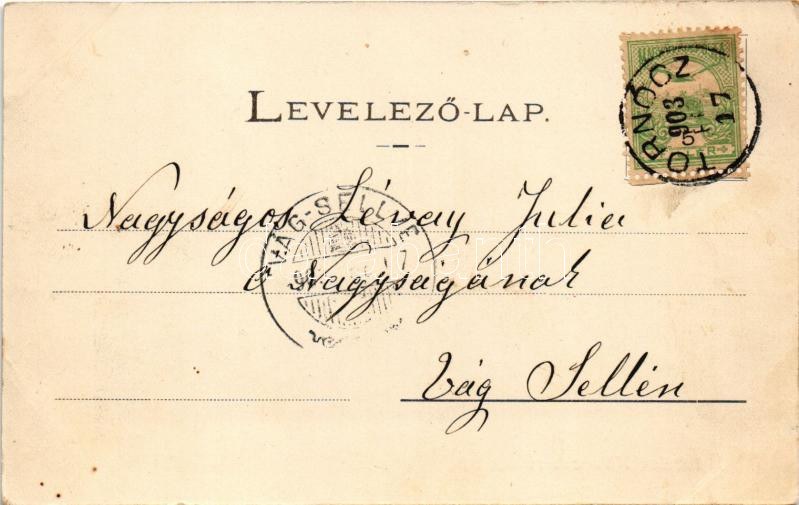 LEVELEZŐ-LAP.
TORNÓCZ
903
17
VÁG-SELLYE
Nagyságos Lévay Julia
ő Nagyságának
Vág Sellén